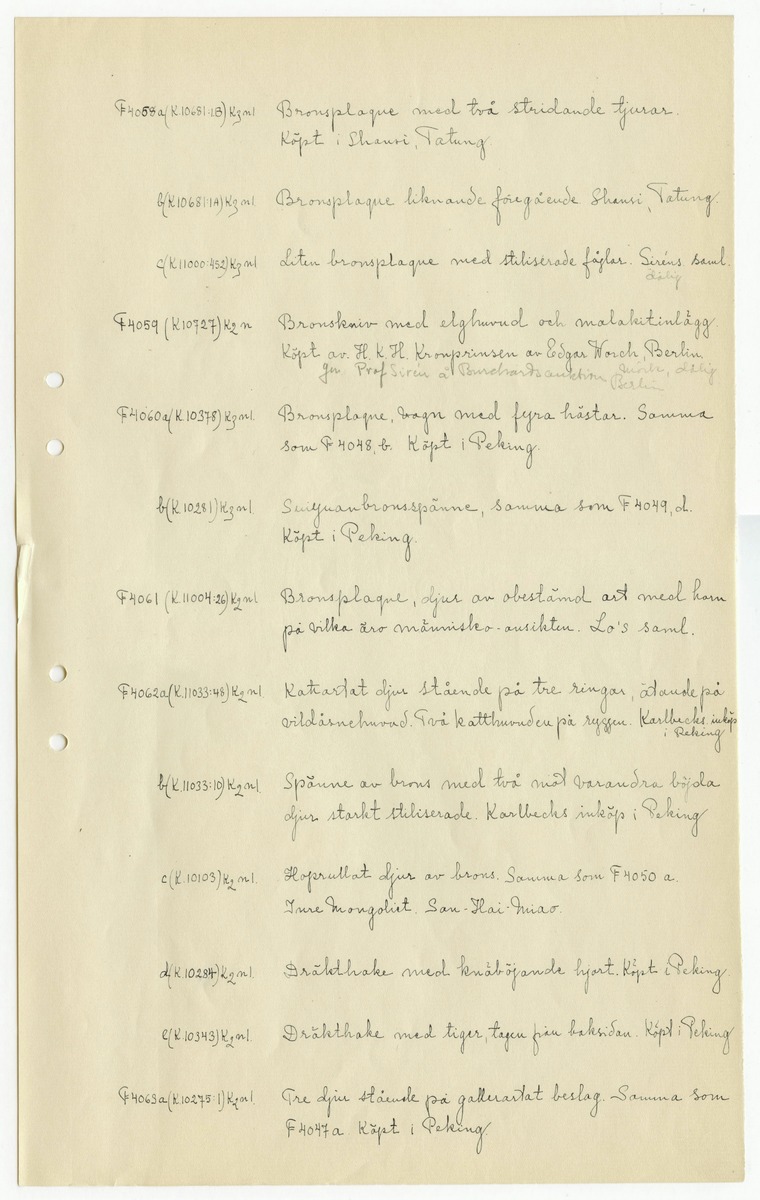 F4058a(K.10681:1B)K3nl. Bronsplaque med två stridande tjurar.
Köpt i Shansi, Tatung.
b(K10681:1A)K3nl. Bronsplaque liknande föregående Shansi, Tatung.
c(K11000:452)K3nl Liten bronsplaque med stiliserade fåglar. Siréns saml.
dålig
F4059 (K10727)K2n Bronskniv med elghuvud och malakitinlägg.
Köpt av H.K.H. Kronprinsen av Edgar Worch, Berlin.
Gm. Prof Sirén å Burchardsauktion dålig
Berlin
F4060a(K.10378)K3nl. Bronsplaque, vagn med fyra hästar. Samma
som F4048,b. Köpt i Peking.
b(K10281)K3nl. Suiyuanbronsspänne, samma som F4049,d.
Köpt i Peking.
F4061 (K.11004:26)K2nl. Bronsplaque, djur av obestämd art med horn
på vilka äro människo-ansikten. Lo's saml.
F4062a(K.11033:48)K2nl. Kattartat djur stående på tre ringar, ätande på
vildåsnehuvud. Två katthuvuden på ryggen. Karlbecks inköp
i Peking
b(K.11033:10)K2nl. Spänne av brons med två mot varandra böjda
djur starkt stiliserade. Karlbecks inköp i Peking
c(K.10103)K2nl. Hoprullat djur av brons. Samma som F4050 a.
Inre Mongoliet. San-Hai-Miao.
d(K.10284)K2nl. Dräkthake med knäböjande hjort. Köpt i Peking.
e(K.10343)K2nl. Dräkthake med tiger, tagen från baksidan. Köpt i Peking
F4063a(K10275:1)K2nl. Tre djur stående på gallerartat beslag. Samma som
F4047a Köpt i Peking